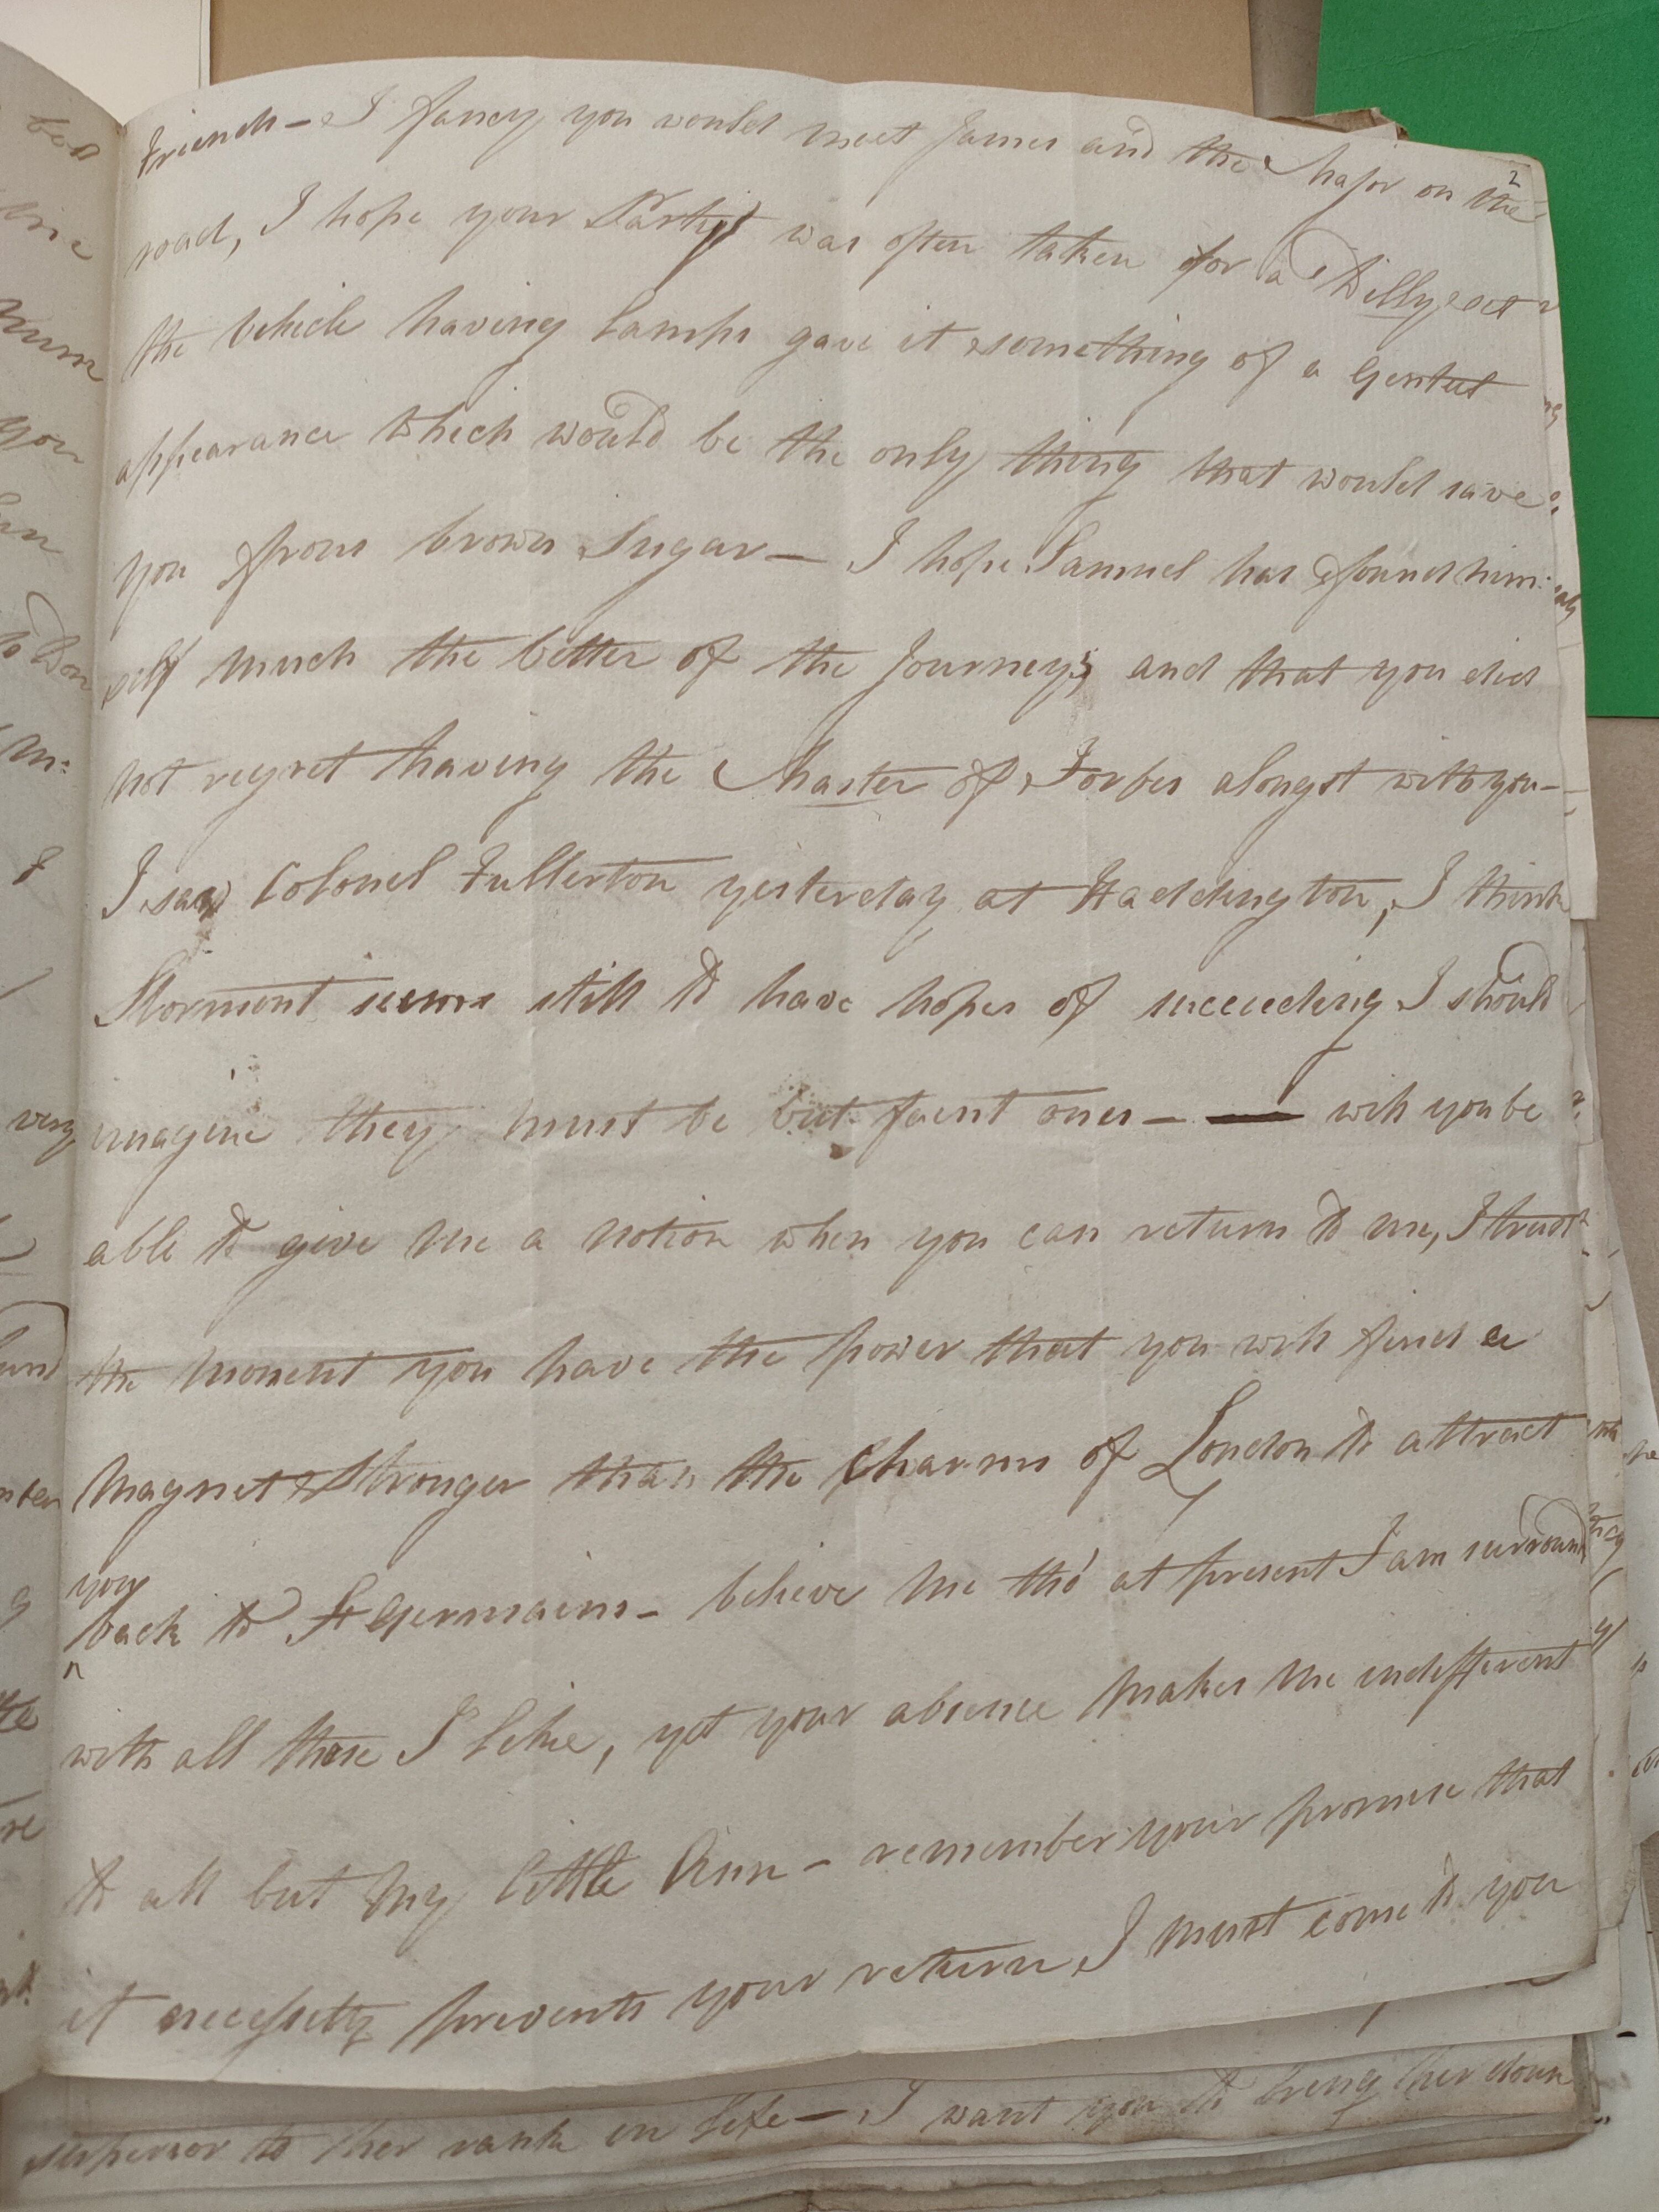 2
Friends – I fancy you would meet James and the Major on the
road, I hope your Party was often taken for a Dilly,
the Vehicle having Lamps gave it something of a Genteel
appearance which would be the only thing that would save
you from brown Sugar – I hope Samuel has found him:
self much the better of the Journey; and that you did
not regret having the Master of Forbes alongst with you –
I saw Colonel Fullerton yesterday at Haddington, I think
Stormont seems still to have hopes of succeeding I should
imagine they must be but faint ones – — will you be
able to give me a notion when you can return to me, I trust
the moment you have the power that you will find a
Magnet Stronger than the Charms of London to attract
you
back to St Germains – believe me tho' at present I am surround
with all those I like, yet your absence makes me indifferent
to all but my little Ann – remember your promise that
if necessity prevents your return I must come to you
superior to her rank in life – I want you to bring her down